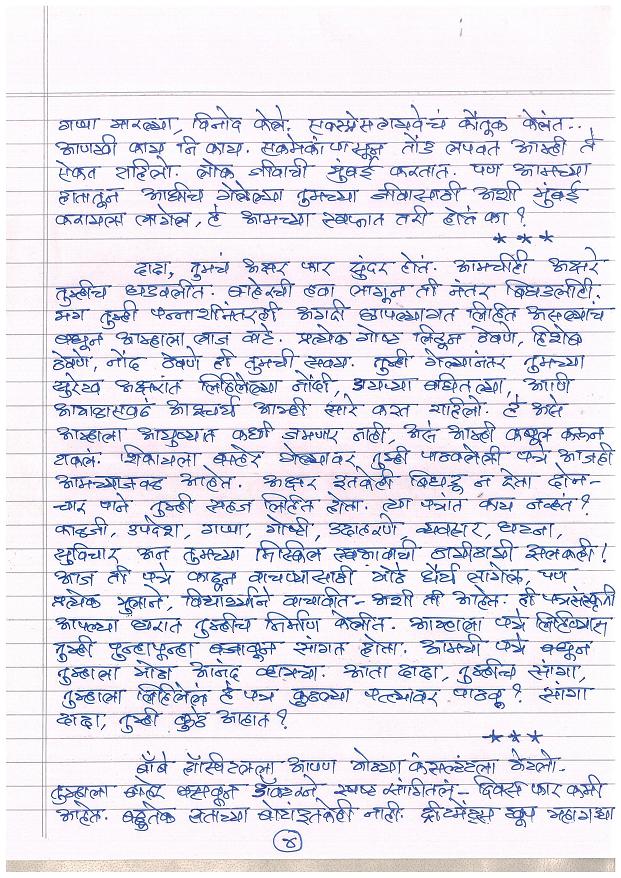 गप्पा मारल्या, विनोद केले. एक्स्प्रेस हायवेचं कौतुक केलंत..
आणखी काय नि काय. एकमेकांपासून तोंड लपवत आम्ही ते
ऐकत राहिलो. लोक जीवाची मुंबई करतात. पण आमच्या
हातातून आधीच गेलेल्या तुमच्या जीवासाठी अशी मुंबई
करायला लागेल, हे आमच्या स्वप्नात तरी होतं का?
***
दादा, तुमचं अक्षर फार सुंदर होतं. आमचीही अक्षरे
तुम्हीच घडवलीत. बाहेरची हवा लागून ती नंतर बिघडलीही.
मग तुम्ही पन्नाशीनंतरही अगदी छापल्यागत लिहीत असल्याचं
बघून आम्हाला लाज वाटे. प्रत्येक गोष्ट लिहून ठेवणे, हिशेब
ठेवणे, नोंद ठेवणे ही तुमची सवय. तुम्ही गेल्यानंतर तुमच्या
सुरेख अक्षरांत लिहिलेल्या नोंदी, डायऱ्या बघितल्या, आणि
आभाळाएवढं आश्चर्य आम्ही सारे करत राहिलो. हे असे
आम्हाला आयुष्यात कधी जमणार नाही, असे आम्ही कबूल करून
टाकलं. शिकायला बाहेर गेल्यावर तुम्ही पाठवलेली पत्रे आजही
आमच्याजवळ आहेत. अक्षर इतकेही बिघडू न देता दोन-
चार पाने तुम्ही सहज लिहित होता. त्या पत्रांत काय नव्हतं?
काळजी, उपदेश, गप्पा, गोष्टी, उदाहरणे, व्यवहार, घटना,
सुविचार अन तुमच्या मिस्किल स्वभावाची जागोजागी झलकही!
आज ती पत्रे काढून वाचण्यासाठी मोठे धैर्य लागेल, पण
प्रत्येक मुलाने, विद्यार्थ्याने वाचावीत- अशी ती आहेत. ही पत्रसंस्कृती
आपल्या घरात तुम्हीच निर्माण केलीत. आम्हाला पत्रे लिहिण्यास
तुम्ही पुन्हापुन्हा बजावून सांगत होता. आमची पत्रे बघून
तुम्हाला मोठा आनंद व्हायचा. आता दादा, तुम्हीच सांगा,
तुम्हाला लिहिलेलं हे पत्र कुठल्या पत्त्यावर पाठवू? सांगा
दादा, तुम्ही कुठे आहात?
***
बॉंबे हॉस्पिटलला आपण मोठ्या कंसल्टंटला भेटलो-
तुम्हाला बाहेर बसवून डॉक्टरने स्पष्ट सांगीतलं- दिवस फार कमी
आहेत. बहुतेक हाताच्या बोटांइतकेही नाही. ट्रीटमेंट्स खूप महागड्या
४